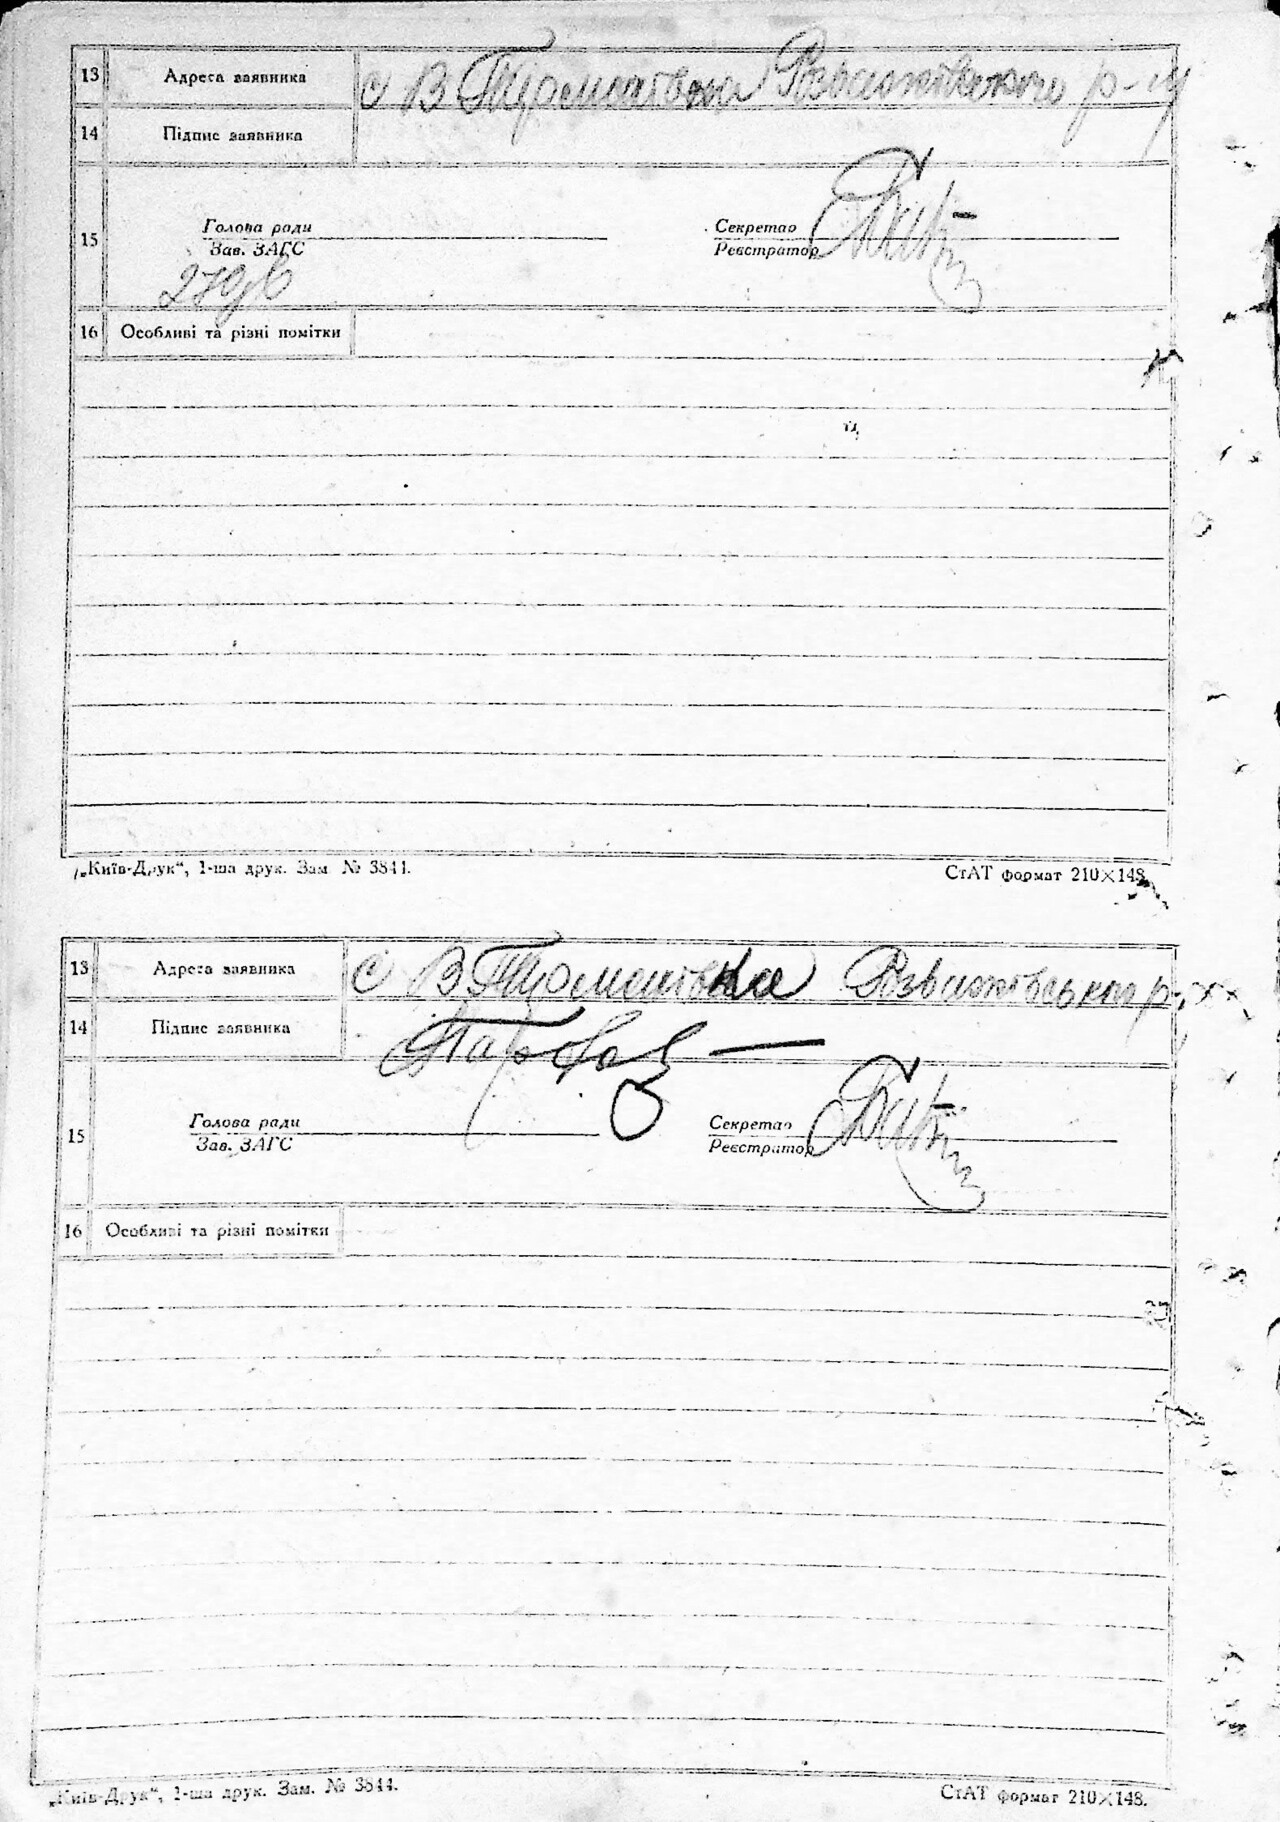 13 Адреса заявника с В Тромитовка Розважівського р-ну
14 Підпис заявника
15 Голова ради Секретар
Зав. ЗАГС Реєстратор
16 Особливі та різні помітки
„Київ-Друк“, 1-ша друк. Зам № 3844. СтАТ формат 210×148
13 Адреса заявника с В Розважівського р-
14 Підпис заявника
15 Голова ради Секретар
Зав. ЗАГС Реєстратор
16 Особливі та різні помітки
„Київ-Друк“, 1-ша друк. Зам. № 3844. СтАТ формат 210×148.